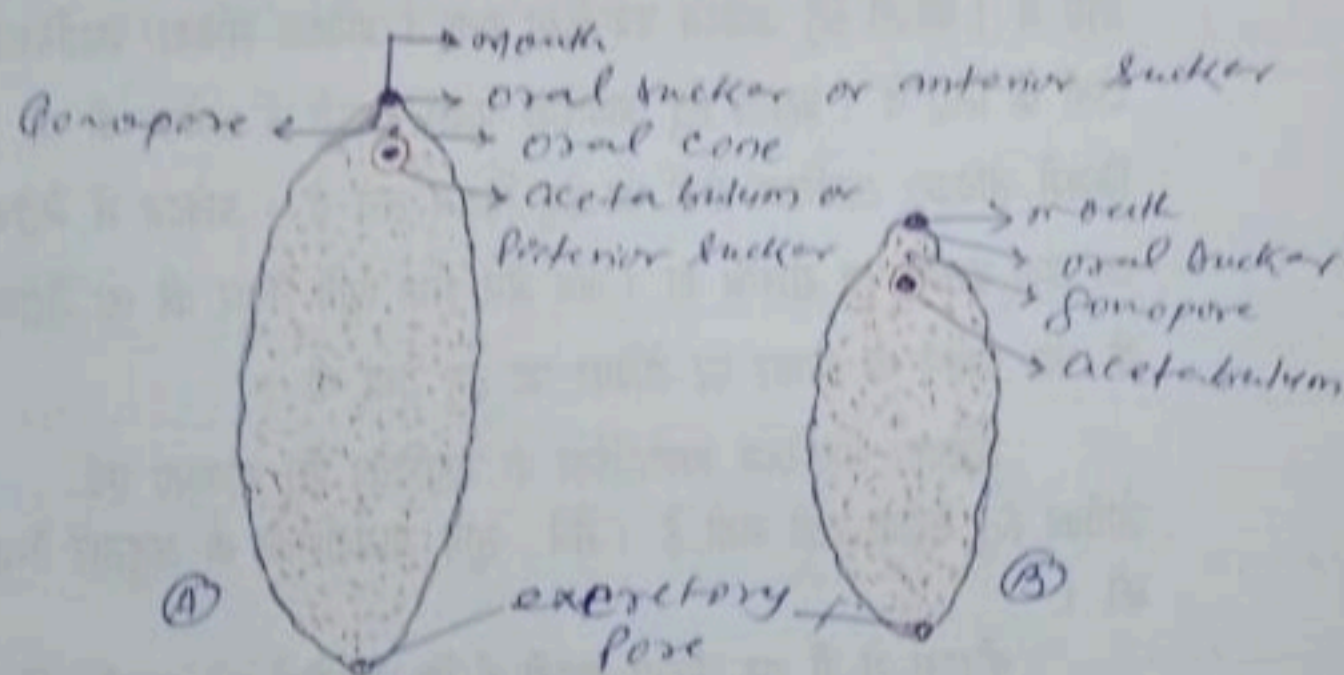 mouth
oral sucker or anterior sucker
Gonopore
oral cone
acetabulum or
Posterior sucker
mouth
oral sucker
gonopore
acetabulum
A
excretory
Pore
B